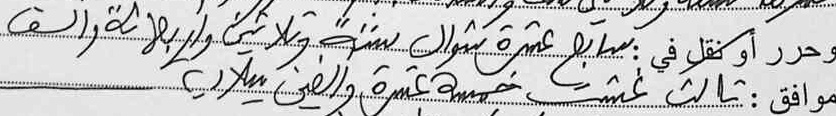 وحرر أو نقل في : سابع عشرة شوال سنة وثلاثين وأربعمائة وألف
موافق : ثالث غشت خمسة عشرة وألفين ميلادي